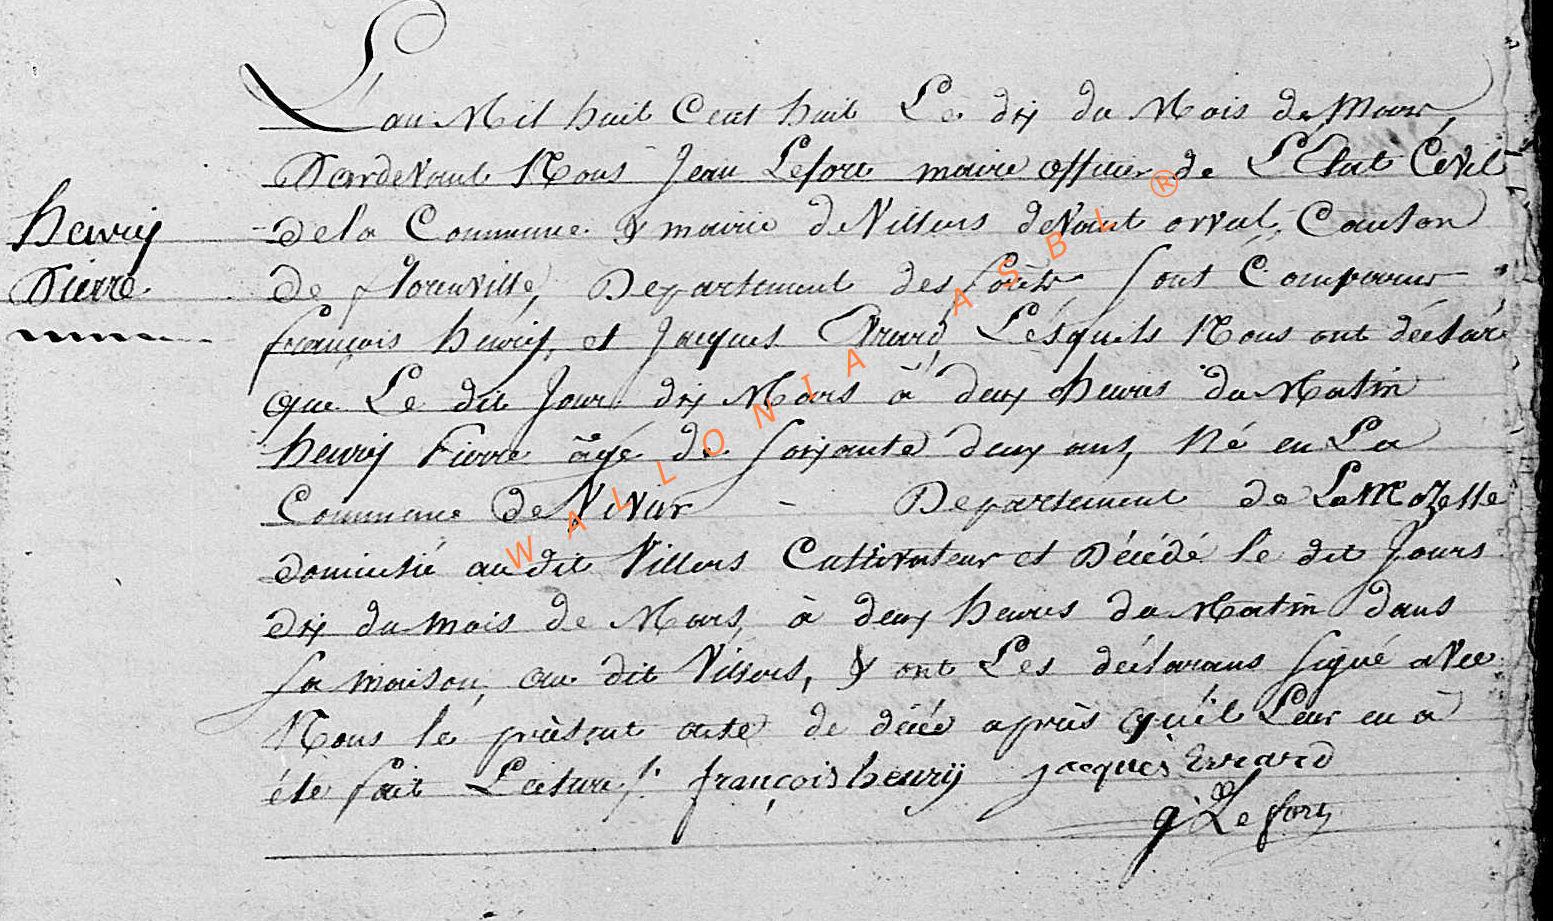 henrij
Pierre
L'an Mil huit Cent huit Le dix du Mois de Mars,
Pardevant Nous Jean Lefort maire officier de L'Etat Cévil
de la Commune & mairie de Villers devant orval, Canton
de florenville, Departement des forêts sont Comparus
françois henrij, et Jacques Erard, Lésquels Nous ont déclaré
que Le dit Jour dix Mars à deux heures du Matin
henrij Pierre âgé de soixante deux ans, Né en La
Commune de Vivier - Departement de La Mozelle
domicilié au dit Villers Cultivateur et Décédé le dit Jours
dix du mois de Mars, à deux heures du Matin dans
sa maison, au dit Villers, & ont Les déclarans signé avec
Nous lé présent acte de décée après qu'il Leur en à
été fait Lecture /. françois henrij jacques Errard
g Le fort
WALLONIA ASBL ®